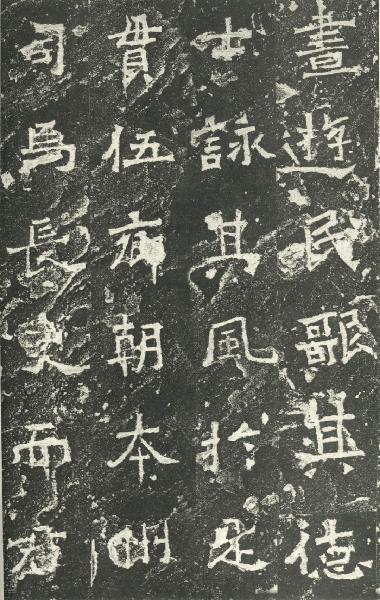 晝遊民歌其德
士詠其風於是
貫伍鄉朝本州
司馬長史而方